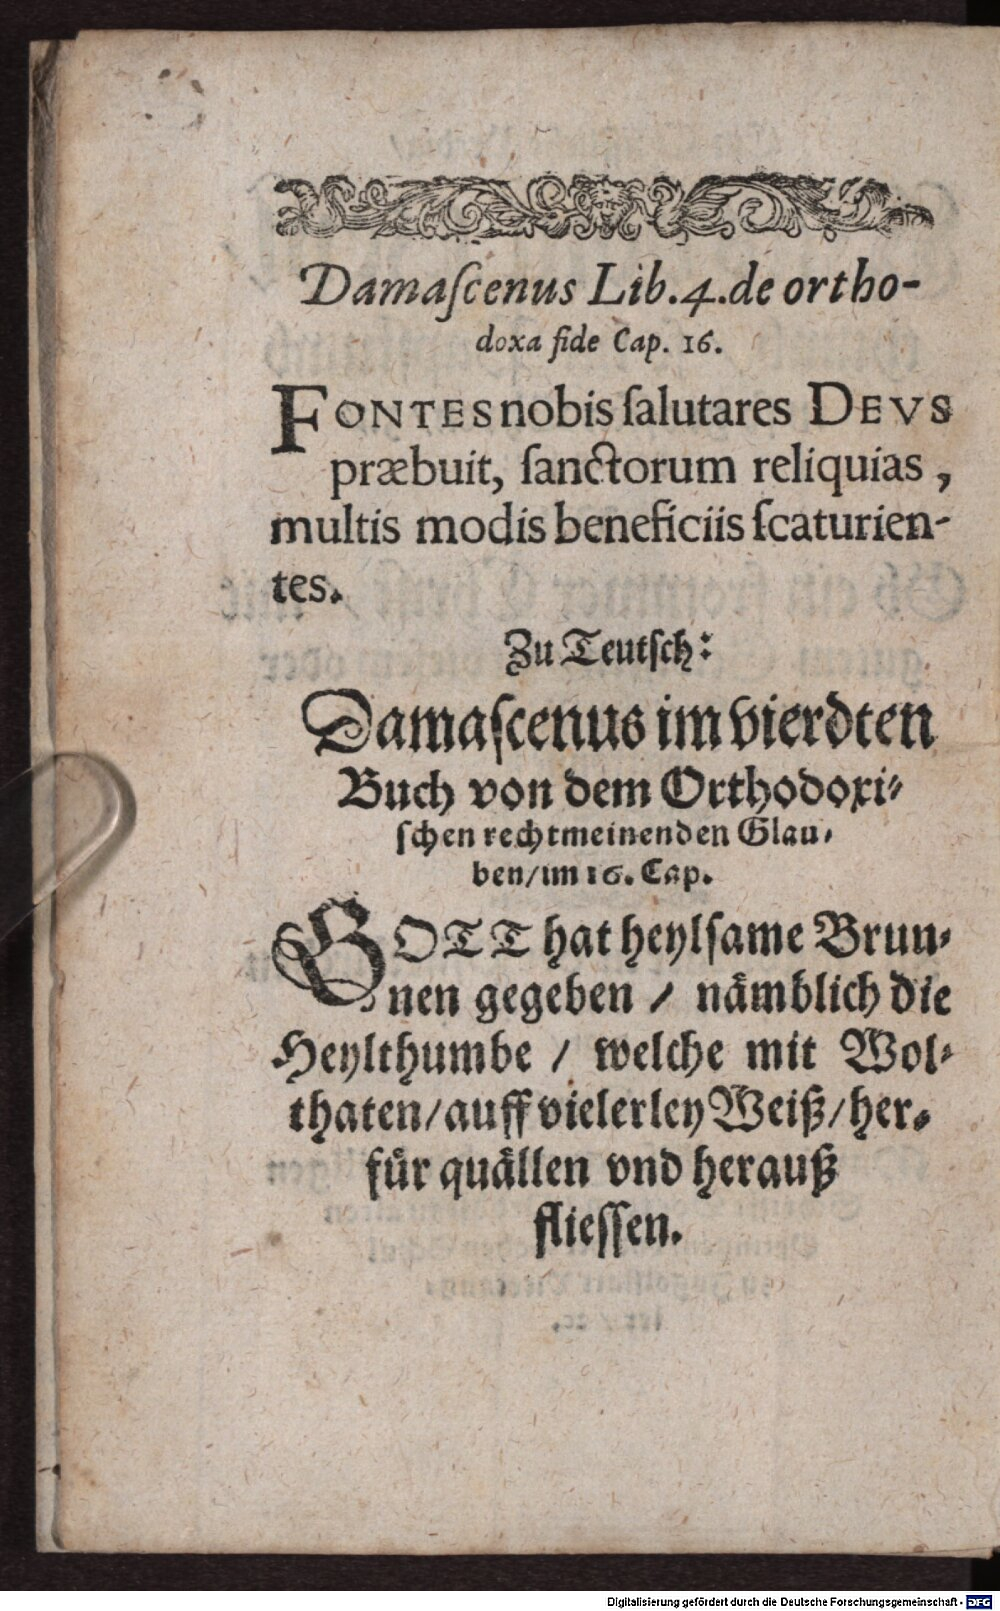 Damaſcenus Lib.4.de ortho-
doxa fide Cap. 16.
FONTES nobis ſalutares DEVS
præbuit, ſanctorum reliquias,
multis modis beneficiis ſcaturien-
tes.
Zu Teutſch:
Damaſcenus im vierdten
Buch von dem Orthodoxi-
ſchen rechtmeinenden Glau-
ben/im 16. Cap.
GOTT hat heylſame Brun-
nen gegeben / nämblich die
Heylthumbe / welche mit Wol-
thaten/auff vielerley Weiß/her-
für quällen vnd herauß
flieſſen.
Digitalisierung gefördert durch die Deutsche Forschungsgemeinschaft - DFG